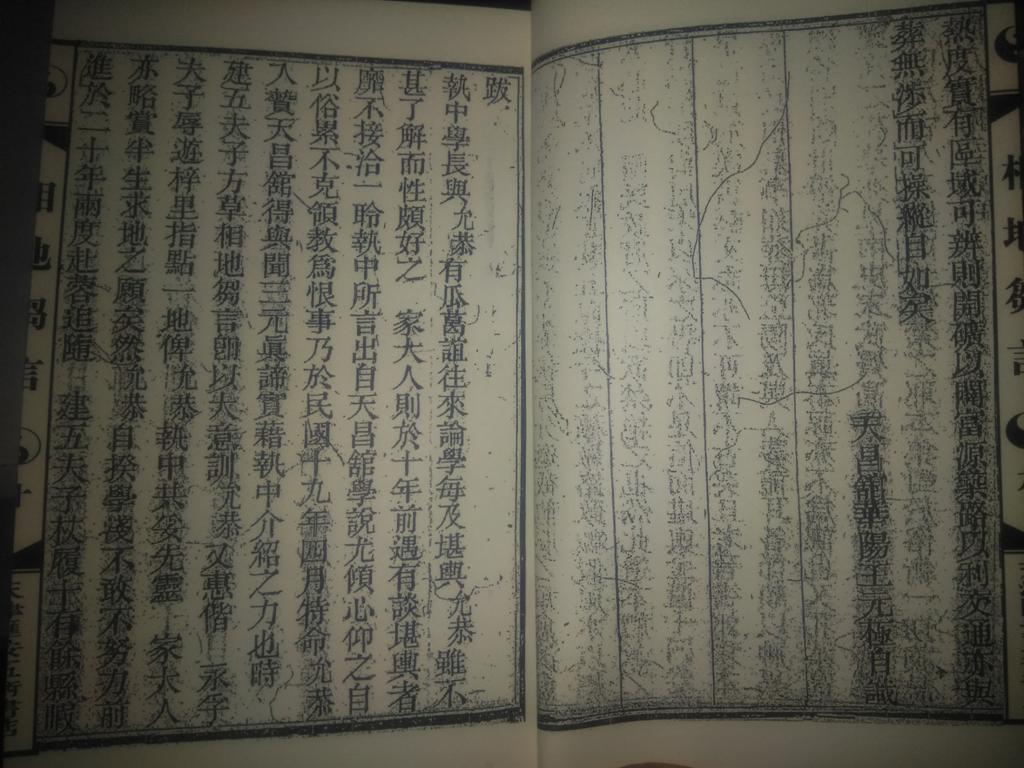 熱度實有區域可辨則開礦以闢富源築路以利交通亦與
葬無涉而可操縱自如矣
天昌舘華陽王元極自識
相地芻言
跋
執中學長與允恭有瓜葛誼往來論學每及堪輿允恭 雖不
甚了解而性頗好之 家大人則於十年前遇有談堪輿者
靡不接洽一聆執中所言出自天昌舘學說尤傾心仰之自
以俗累不克領教爲恨事乃於民國十九年四月特命允恭
入贄天昌舘得與聞三元眞諦實藉執中介紹之力也時
建五夫子方草相地芻言卽以大意訓允恭 又惠偕 永孚
夫子辱遊梓里指點一地俾允恭執中共妥先靈 家大人
亦略賞半生求地之願矣然允恭自揆學淺不敢不努力前
進於二十年兩度赴蓉追隨 建五夫子杖履十有餘縣暇